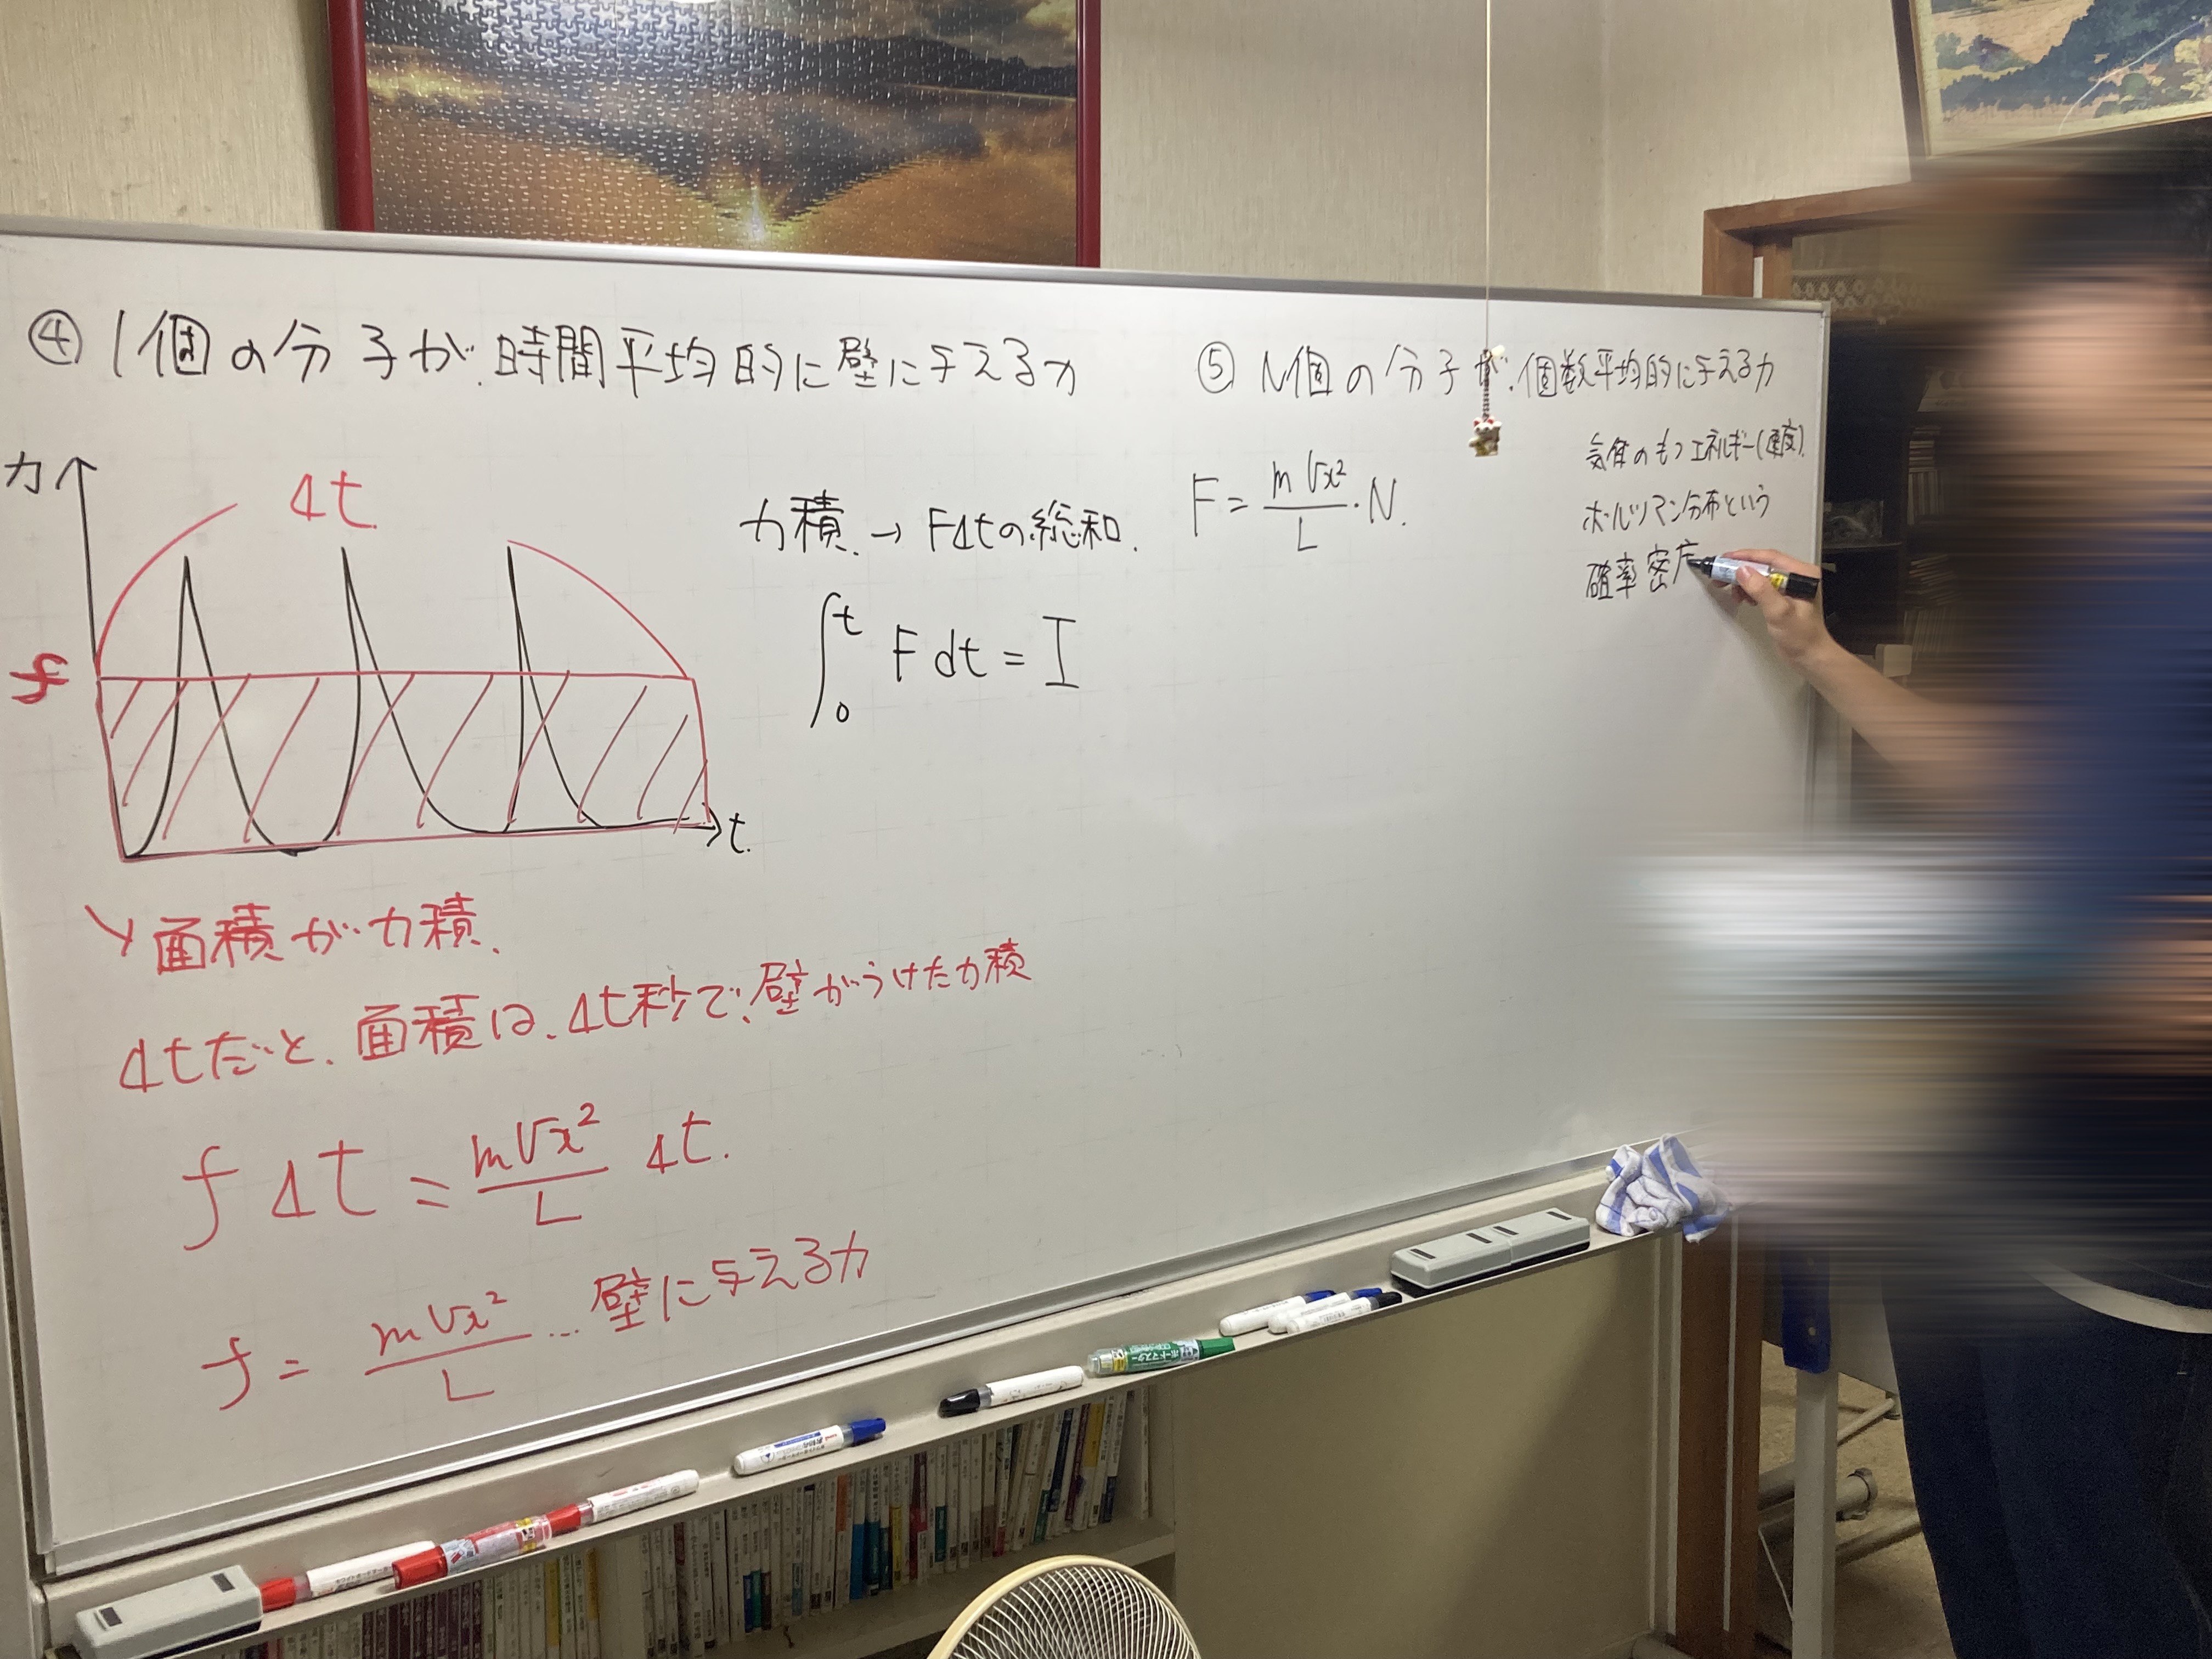 ④ 1個の分子が、時間平均的に壁に与える力
力
Δt
f
t
力積 → FΔtの総和.
∫₀ᵗ F dt = I
面積が力積.
Δtだと、面積は、Δt秒で、壁がうけた力積
f Δt = mvx²/L Δt.
f = mvx²/L … 壁に与える力
⑤ N個の分子が、個数平均的に与える力
F = mvx²/L · N.
気体のもつエネルギー(速度)
ボルツマン分布という
確率密度
ボードマスター